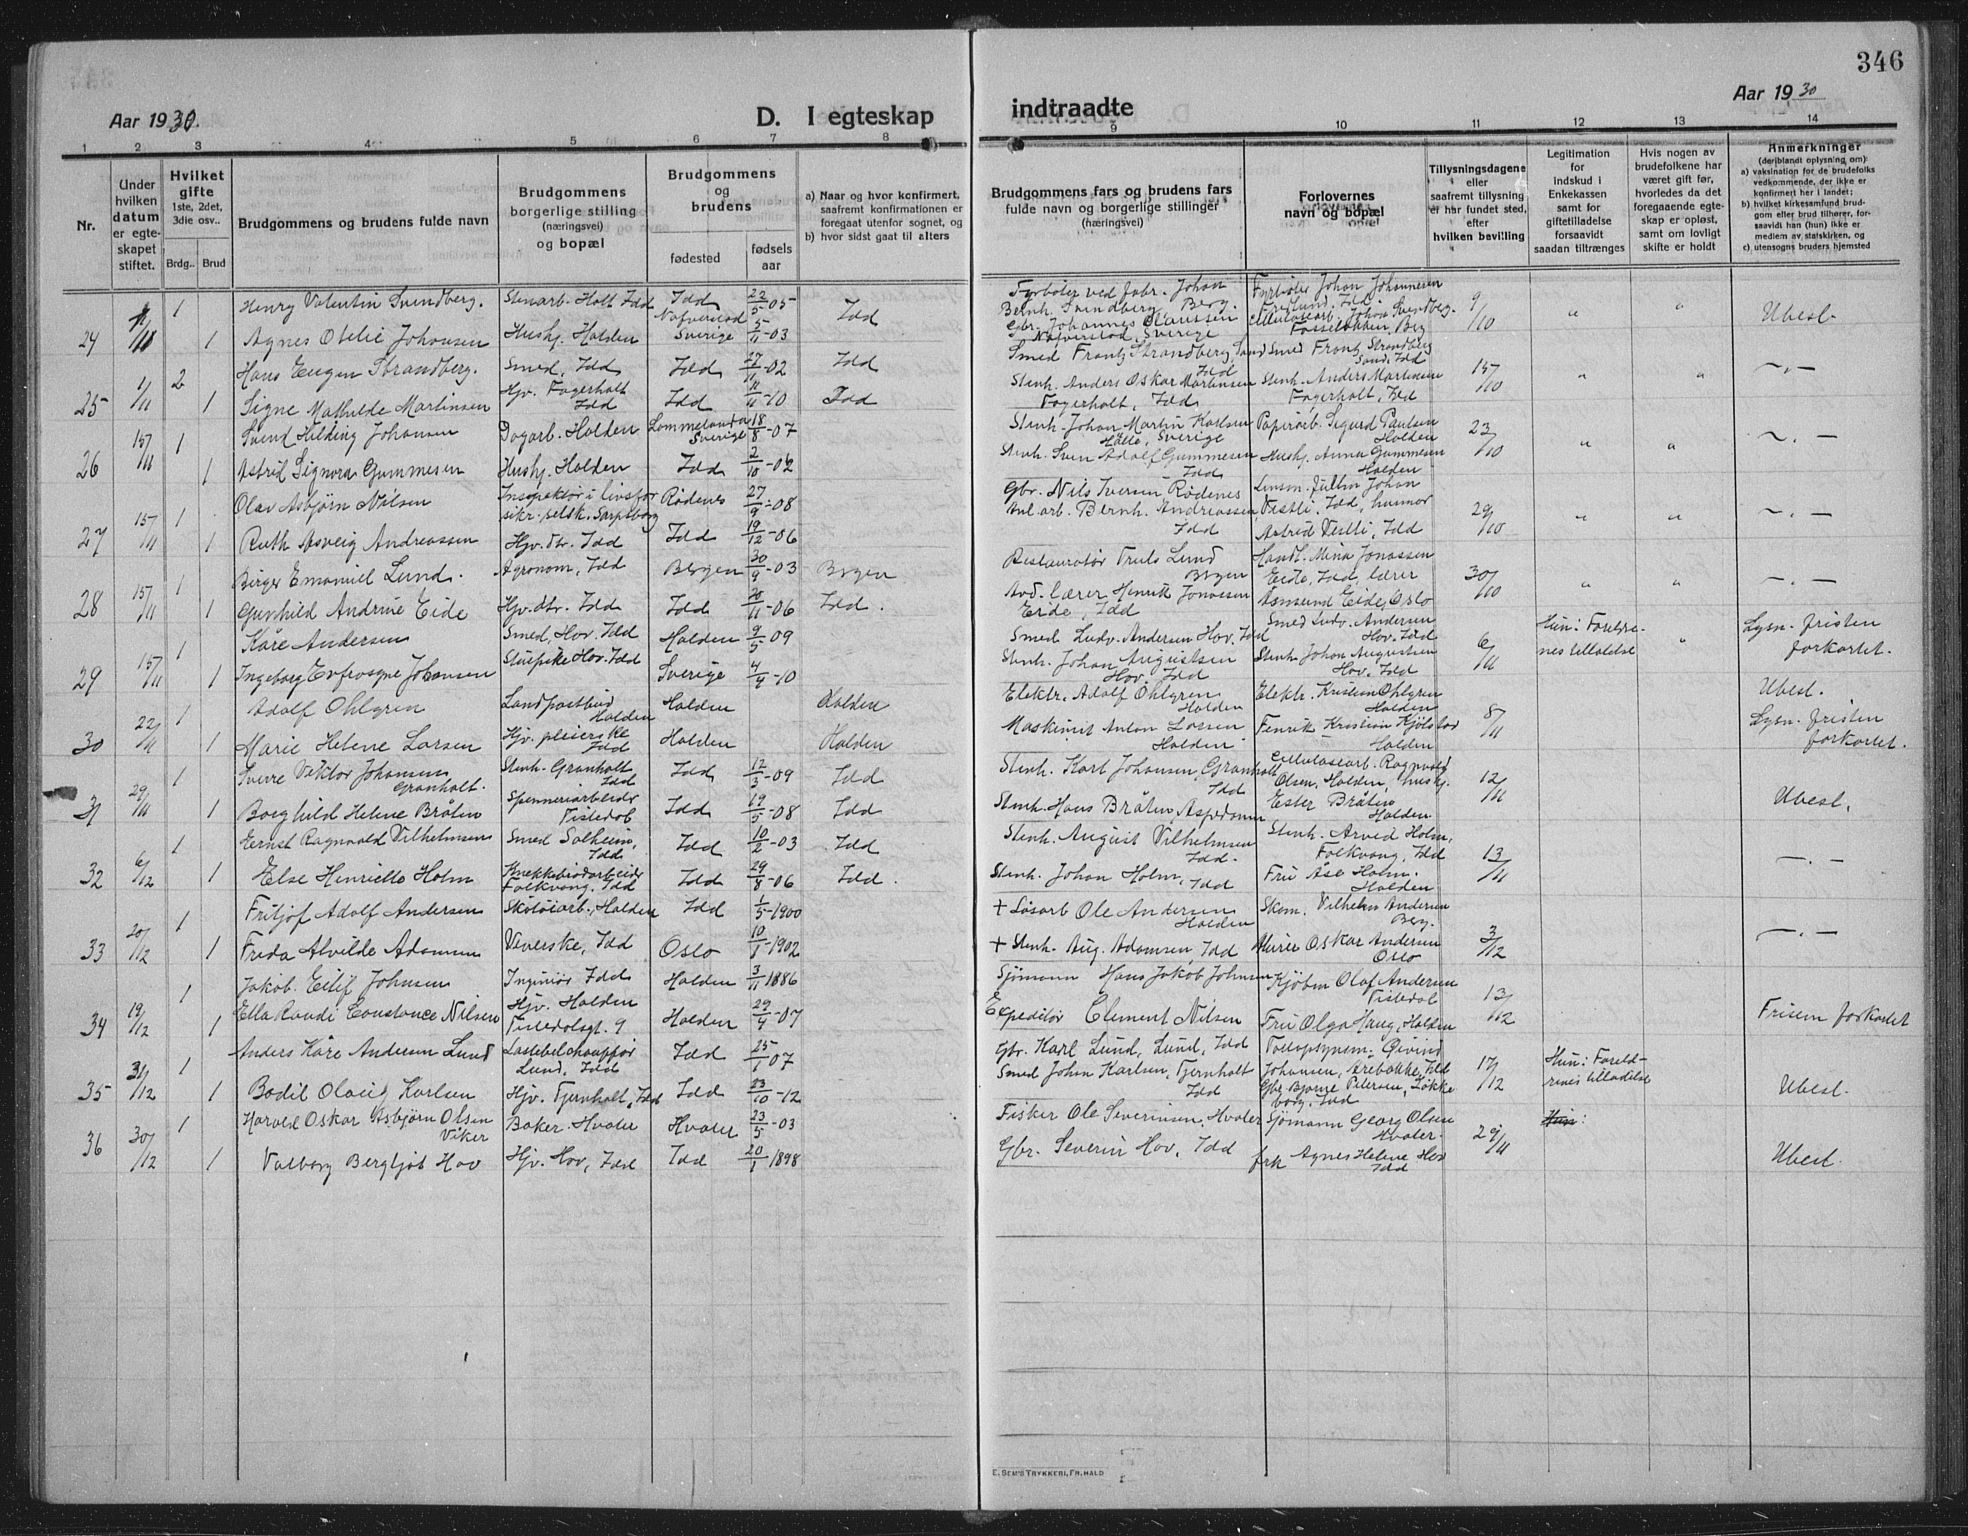 346
Aar 1930.
D. I egteskap
indtraadte
Aar 1930
1 2 3 4 5 6 7 8
9 10 11 12 13 14
Nr.
Under hvilken datum er egteskapet stiftet.
Hvilket gifte 1ste, 2det, 3die osv..
Brdg.. Brud
Brudgommens og brudens fulde navn
Brudgommens borgerlige stilling (næringsvei) og bopæl
Brudgommens og brudens
fødested
fødselsaar
a) Naar og hvor konfirmert, saafremt konfirmationen er foregaat utenfor sognet, og
b) hvor sidst gaat til alters
Brudgommens fars og brudens fars fulde navn og borgerlige stillinger (næringsvei)
Forlovernes navn og bopæl
Tillysningsdagene eller saafremt tillysning er har fundet sted, efter hvilken bevilling
Legitimation for indskud i Enkekassen samt for giftetilladelse forsaavidt saadan tiltrænges
Hvis nogen av brudefolkene har været gift før, hvorledes da det foregaaende egteskap er opløst, samt om lovligt skifte er holdt
Anmerkninger (deriblandt oplysning om)
a) vaksination for de brudefolks vedkommende, der ikke er konfirmert her i landet;
b) hvilket kirkesamfund brudgom eller brud tilhører, forsaavidt han (hun) ikke er medlem av statskirken, og
c) utensogns bruders hjemsted
24 1 Henry Valentin Svendberg. Stenarb. Holt Idd Idd 22/5-05 Idd Fyrbøter ved fabr. Johan Bernh. Svendberg, Berg. Fyrbøter Johan Johannesen 9/10 " " Ubest.
1 Agnes Otilie Johansen Hushj. Halden Sverige 5/11-03 Gbr. Johannes Claussen Sverige
25 1/11 2 Hans Eugen Strandberg. Smed, Idd Idd 27/11-02 Idd Smed Frantz Strandberg, Sand Idd Smed Frantz Strandberg Sand, Idd 15/10 " " -"-
1 Signe Mathilde Martinsen Hjv. Fagerholt Idd Idd 11/11-10 Idd Stenh. Anders Oskar Martinsen Fagerholt, Idd Stenh. Anders Martinsen Fagerholt, Idd
26 15/11 1 Svend Hilding Johansen Dagarb. Halden Lommelanda Sverige 18/8-07 Stenh. Johan Martin Karlsen Sverige Papirarb. Sigurd Paulsen Halden 23/10 " " -"-
1 Astrid Signora Gummesen Hushj. Halden Idd 2/10-02 Stenh. Sven Adolf Gummesen Idd Hushj. Anna Gummesen Halden
27 15/11 1 Olav Asbjørn Nilsen Inspektør i livsforsikr. selsk. Sarpsborg Rødenes 27/9-08 Gbr. Nils Iversen Rødenes Johan Vestli, Idd 29/10 " " -"-
1 Ruth Asveig Andreassen Hjv. dtr. Idd Idd 19/12-06 Bernh. Andreassen Idd Astrid Vestli, Idd
28 15/11 1 Birger Emanuel Lund. Agronom, Idd Bergen 30/9-03 Bergen Restauratør Truls Lund Bergen Handl. Mina Jonassen Eide, Idd, lærer 30/10 " " -"-
1 Gunhild Andrine Eide Hjv. dtr. Idd Idd 20/11-06 Idd. Avd. lærer Henrik Jonassen Eide, Idd Asmund Eide, Oslo
29 15/11 1 Kåre Andersen Smed, Hov. Idd Halden 9/5-09 Smed Ludv. Andersen Hov, Idd Smed Ludv. Andersen Hov. Idd 6/11 Hun: Foreldrenes tilladelse " Lysn. fristen forkortet.
1 Ingeborg Evfrosyne Johansen Stuepike Hov. Idd Sverige 4/4-10 Stenh. Johan Augustsen Hov, Idd Stenh. Johan Augustsen Hov. Idd
30 22/11 1 Adolf Ohlgren Landpostbud Halden Halden Halden Elektr. Adolf Öhlgren Halden Elektr. Kristian Ohlgren Halden 8/11 Ubest. Lysn. fristen forkortet.
1 Marie Helene Larsen Hjv. pleierske Idd Halden Halden Maskinist Anton Larsen Halden Fenrik Kristian Kjølstad Halden
31 29/11 1 Sverre Viktor Johansen Granholt. Stenh. Granholt Idd Idd 12/3-09 Idd Stenh. Karl Johansen, Granholt Idd Cellulosearb. Ragnvald Olsen, Halden, hushj. 12/11 Ubest.
1 Borghild Helene Bråten Spenneriarbeider Tistedal Idd 19/5-08 Idd Stenh. Hans Bråten, Aspedammen Ester Bråten Halden
32 6/12 1 Ernst Ragnvald Vilhelmsen Smed Solheim, Idd Idd 10/2-03 Idd Stenh. August Vilhelmsen Idd. Stenh. Arvid Holm, Folkvang, Idd 13/11 -"-
1 Else Henriette Holm Knekkebrødarbeider Folkvang, Idd Idd 29/8-06 Idd. Stenh. Johan Holm, Idd Fru Åse Holm. Halden
33 20/12 1 Fritjof Adolf Andersen Skotøiarb., Halden Idd 1/5-1900 + Løsarb Ole Andersen Halden Skom. Vilhelm Andersen Berg. 3/12 -"-
1 Frida Alvilde Adamsen Veverske, Idd Oslo 10/1-1902 + Stenh. Aug. Adamsen, Idd Murer Oskar Andersen Oslo
34 19/12 1 Jakob Eilif Johnsen Ingeniør Idd Halden 3/11 1886 Sjømann Hans Jakob Johnsen Kjøbm Olaf Andersen Tistedal 13/12 Fristen forkortet
1 Ella Randi Constance Nilsen Hjv. Halden Tistedalsgt. 9 Halden 29/4-07 Expeditør Clement Nilsen Fru Olga Haug, Halden
35 31/12 1 Anders Kåre Andersen Lund Lastebilchauffør Lund, Idd Idd 25/1 07 Gbr. Karl Lund, Lund, Idd Tollopsynsm. Øivind Johansen, Arebakke, Idd 17/12 Hun: Foreldrenes tilladelse Ubest.
1 Bodil Olaug Karlsen Hjv. Tjernholt, Idd Idd 23/10-12 Smed John Karlsen, Tjernholt Idd Gbr Bjarne Petersen, Løkkeborg, Idd
36 30/12 1 Harald Oskar Asbjørn Olsen Viker Baker. Hvaler Hvaler 23/5-03 Fisker Ole Severinsen, Hvaler Sjømann Georg Olsen Hvaler. 29/11 Hun: Ubest.
1 Valborg Bergljot Hov Hjv. Hov, Idd Idd 20/1 1898 Gbr. Severin Hov, Idd frk Agnes Helene Hov Idd
E. SEM'S TRYKKERI, FR.HALD